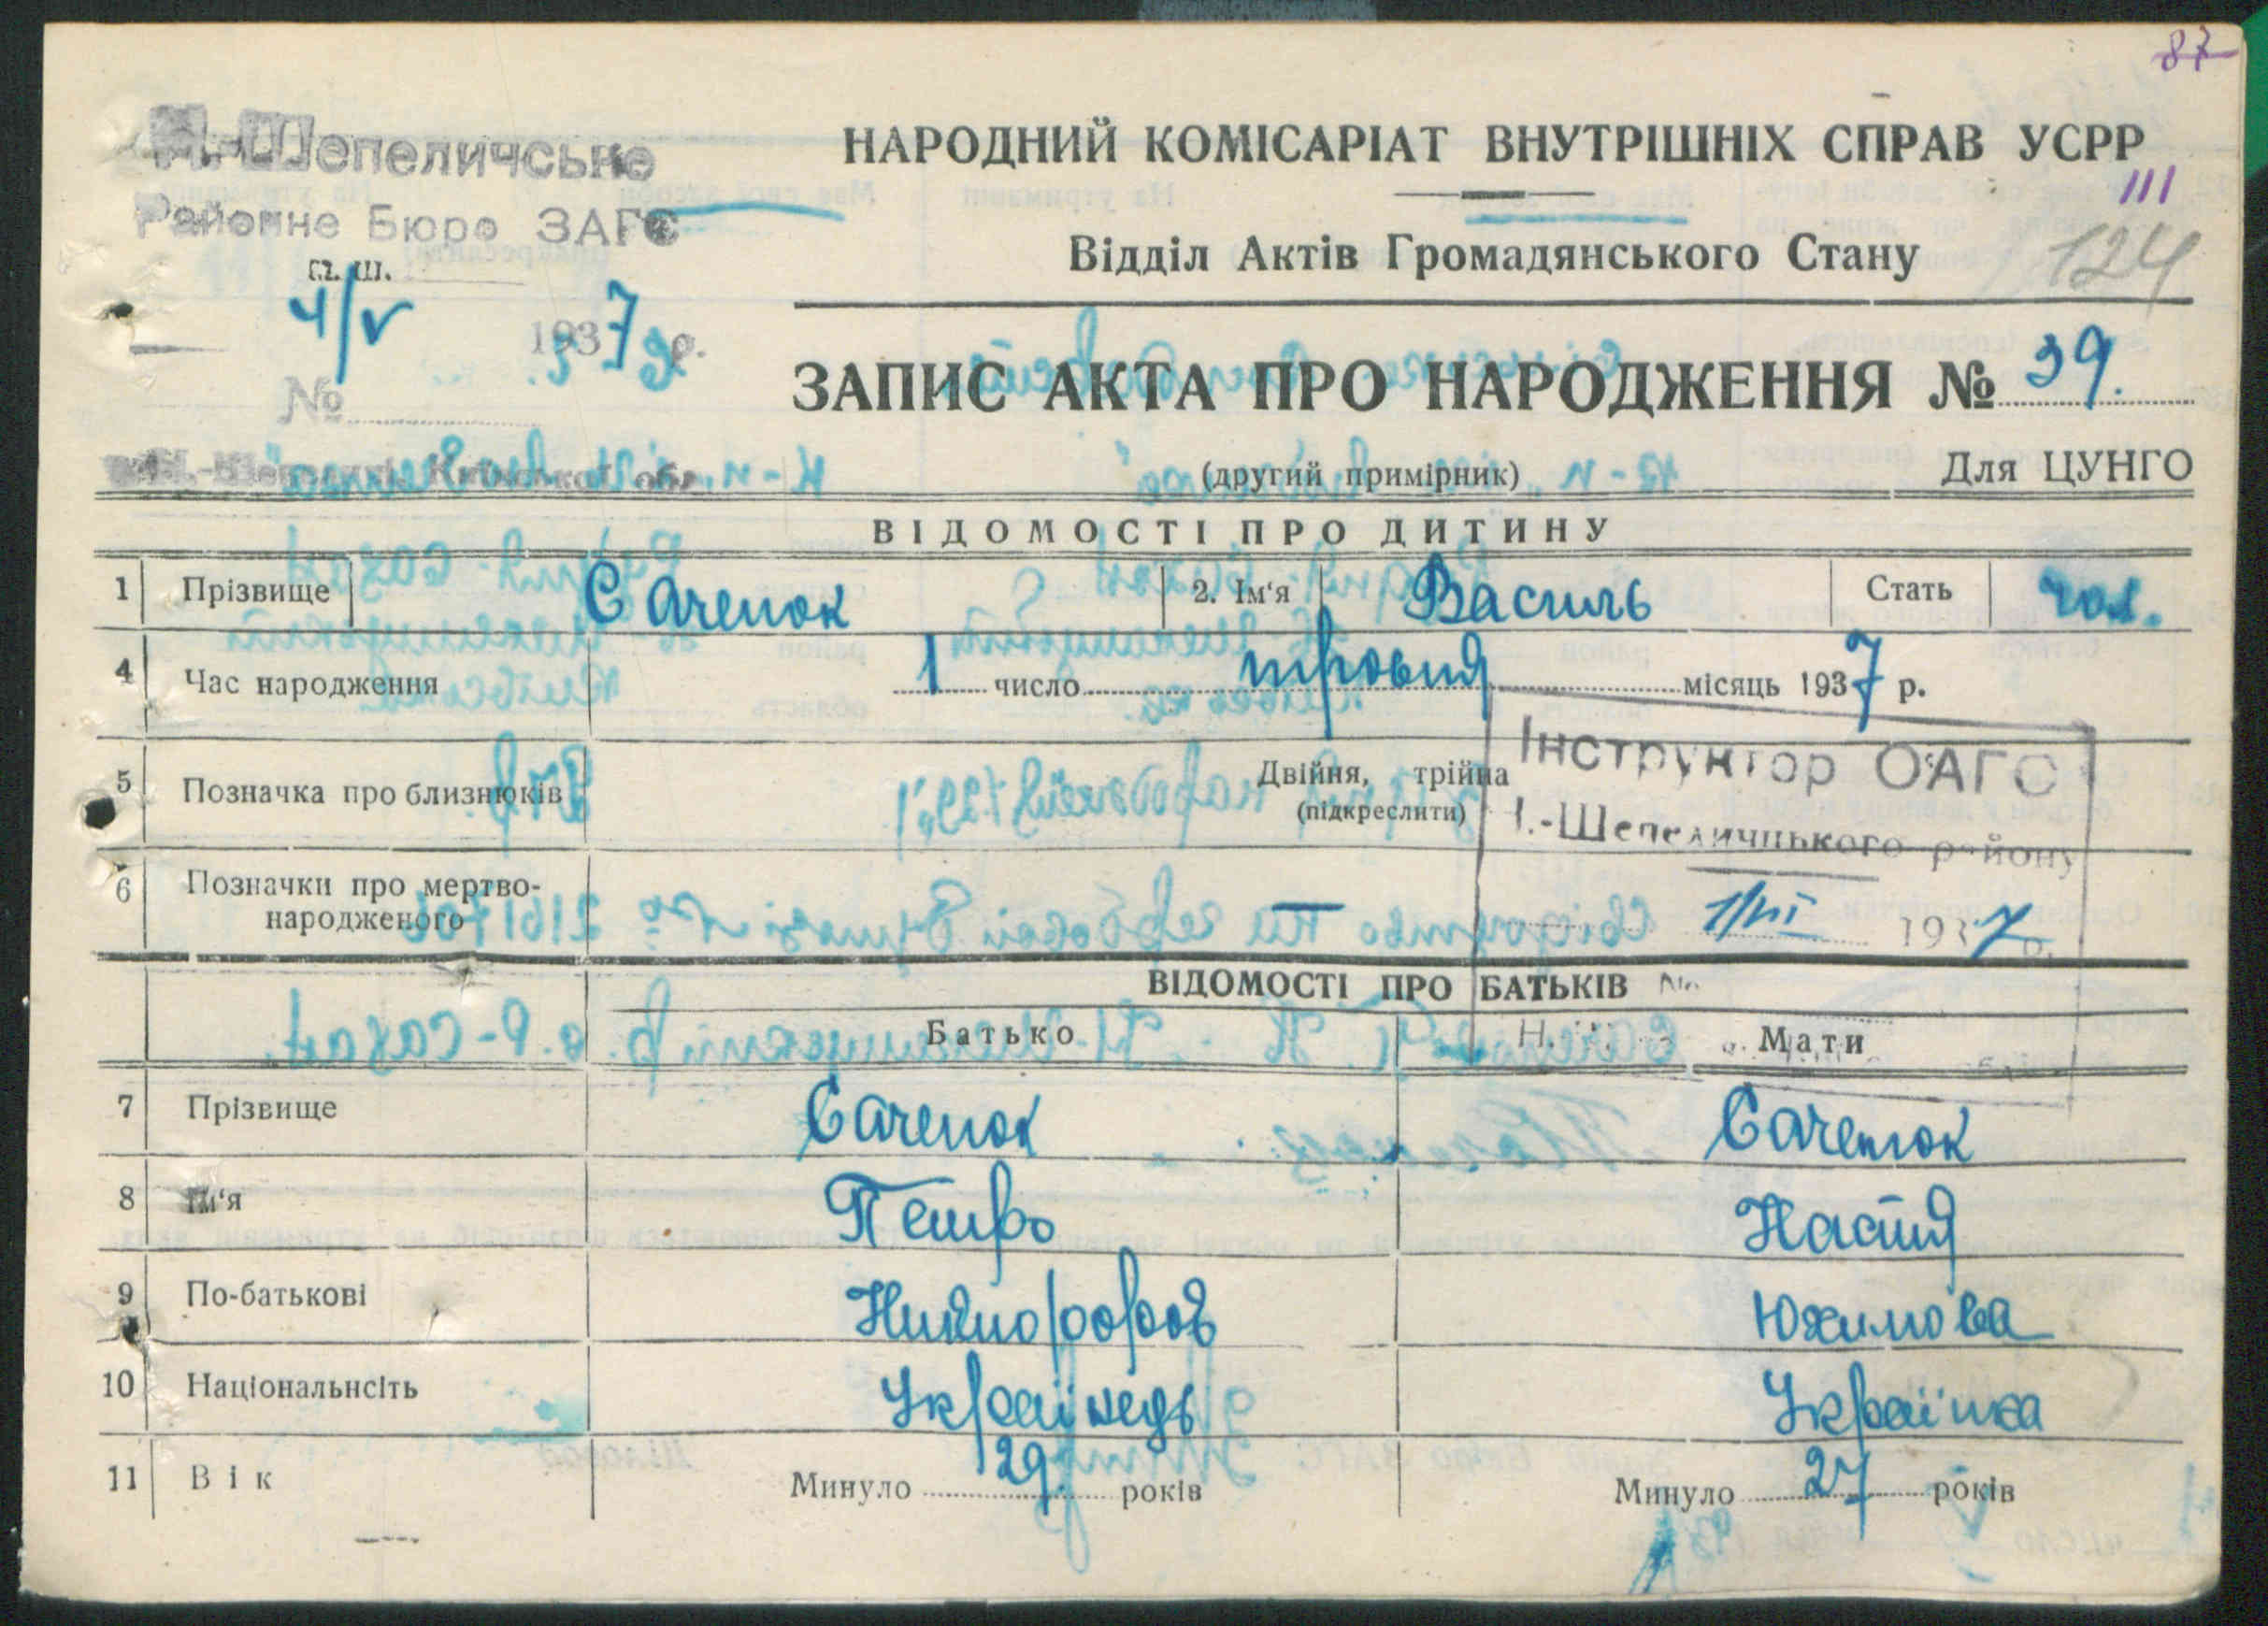 87
Н.-Шепеличське
НАРОДНИЙ КОМІСАРІАТ ВНУТРІШНІХ СПРАВ УСРР
Районне Бюро ЗАГС
111
Відділ Актів Громадянського Стану
124
4/V 1937 р.
ЗАПИС АКТА ПРО НАРОДЖЕННЯ № 39.
№
Н.-Шепеличі, Київської обл.
(другий примірник)
Для ЦУНГО
ВІДОМОСТІ ПРО ДИТИНУ
1 Прізвище Саченок 2. Ім'я Василь Стать чол.
4 Час народження 1 число травня місяць 1937 р.
5 Позначка про близнюків Двійня, трійна
(підкреслити)
Інструктор ОАГС
Н.-Шепеличцького району
6 Позначки про мертво-
народженого —
1/VI 1937 р.
ВІДОМОСТІ ПРО БАТЬКІВ
№
Батько Мати
7 Прізвище Саченок Саченок
8 Ім'я Петро Настя
9 По-батькові Никифоров Юхимова
10 Національнсіть Українець Українка
11 Вік Минуло 29 років Минуло 27 років